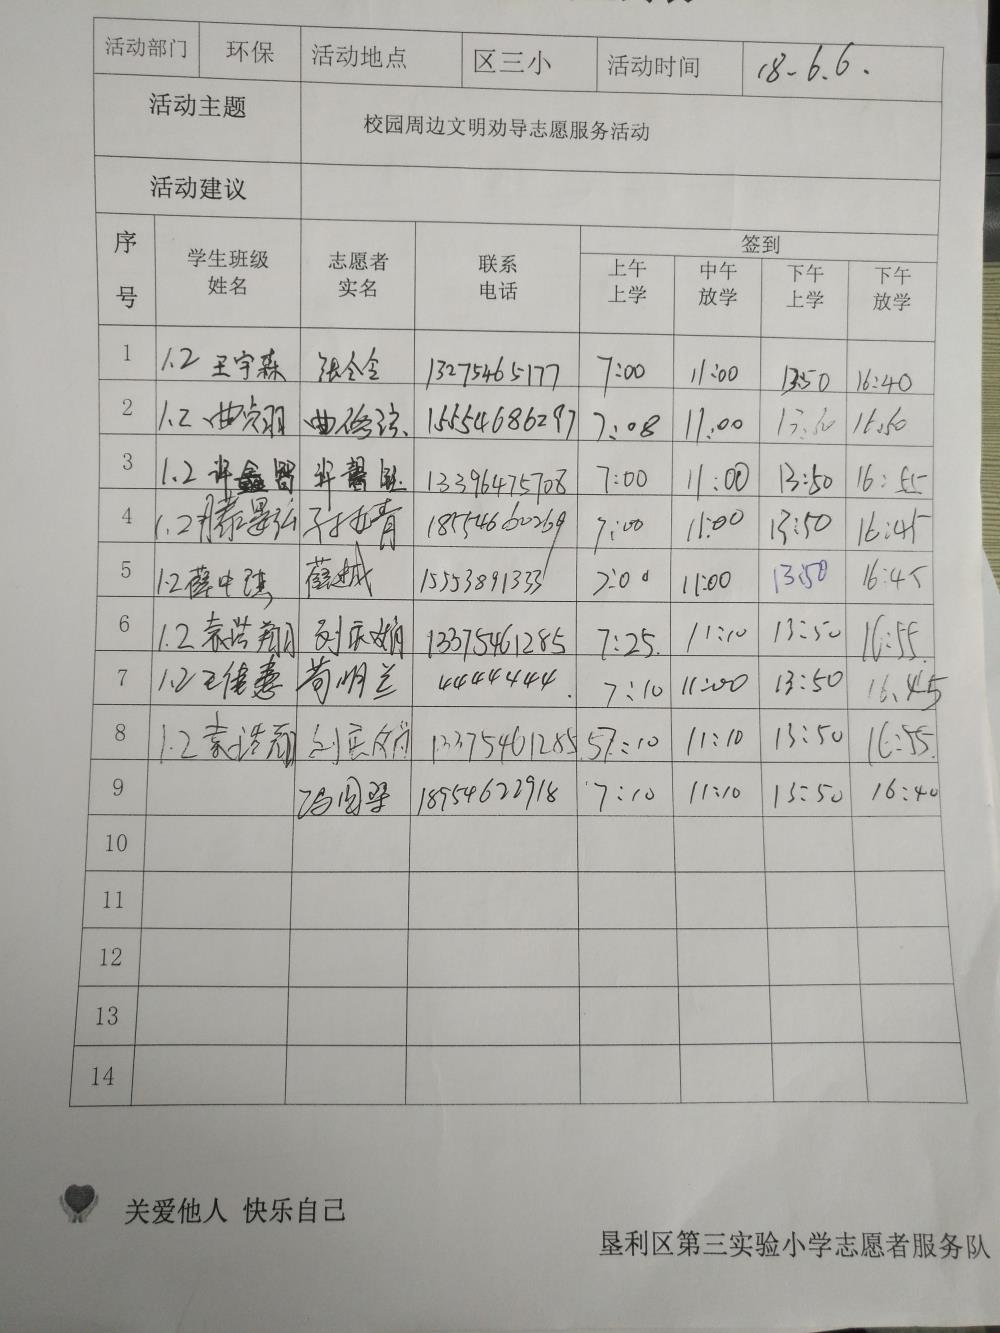 活动部门 环保 活动地点 区三小 活动时间 18.6.6.
活动主题 校园周边文明劝导志愿服务活动
活动建议
序号 学生班级姓名 志愿者实名 联系电话 签到
上午上学 中午放学 下午上学 下午放学
1 1.2 王宇森 张全全 13275465177 7:00 11:00 13:50 16:40
2 1.2 曲 曲 15554686297 7:08 11:00
3 1.2 许鑫 许 13396475708 7:00 11:00 13:50 16:55
4 1.2 滕 青 18554660269 7:00 11:00 13:50 16:45
5 1.2 薛中 薛 15553891333 7:00 11:00 13:50 16:45
6 1.2 袁浩翔 刘庆娟 13375461285 7:25. 11:10 13:50 16:55.
7 1.2 王佳惠 苟明兰 4444444. 7:10 11:00 13:50 16.45
8 1.2 袁浩翔 刘庆娟 13375461285 7:10 11:10 13:50 16:55.
9 冯国翠 18954622918 7:10 11:10 13:50 16:40
10
11
12
13
14
关爱他人 快乐自己
垦利区第三实验小学志愿者服务队